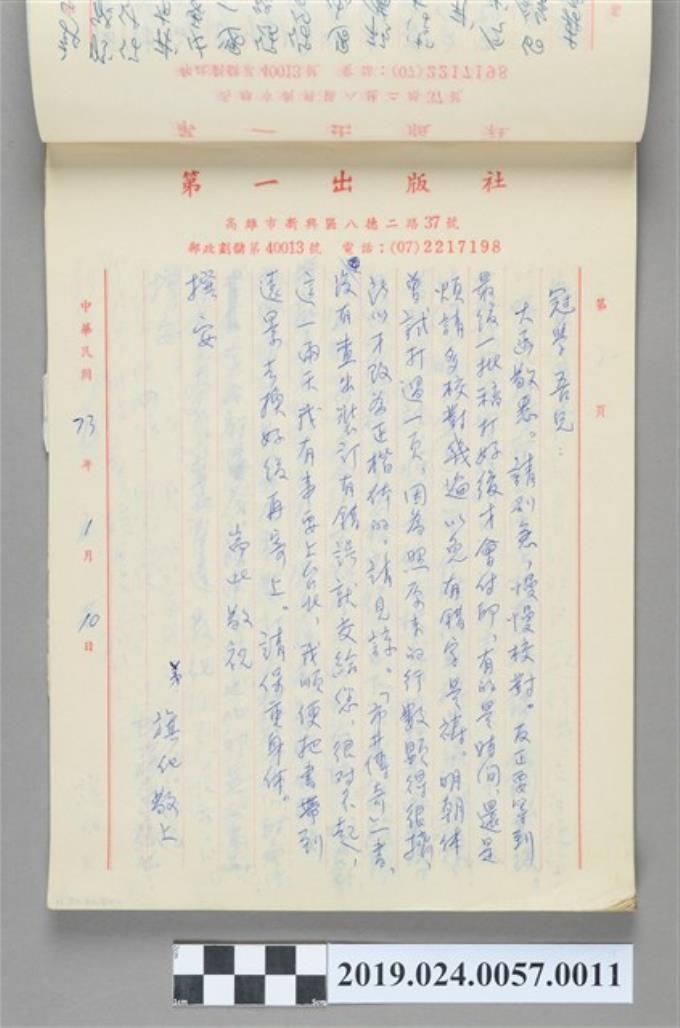 第一出版社
高雄市新興區八德二路37號
郵政劃儲第40013號 電話：(07)2217198
第 頁
冠學吾兄：
大函敬悉。請別急，慢慢校對。反正要等到
最後一批稿打好後才會付印，有的是時間，還是
煩請多校對幾遍以免有錯字是禱。明朝体
曾試打過一頁，因為照原書的行數顯得很擠，
所以才改為正楷体的，請見諒。「市井傳奇」一書，
沒有查出裝訂有錯誤就交給您，很對不起，
這一兩天我有事要上台北，我順便把書帶到
遠景去換好後再寄上。請保重身体。
耑此敬祝
撰安
弟 旗化敬上
中華民國73年1月10日
2019.024.0057.0011